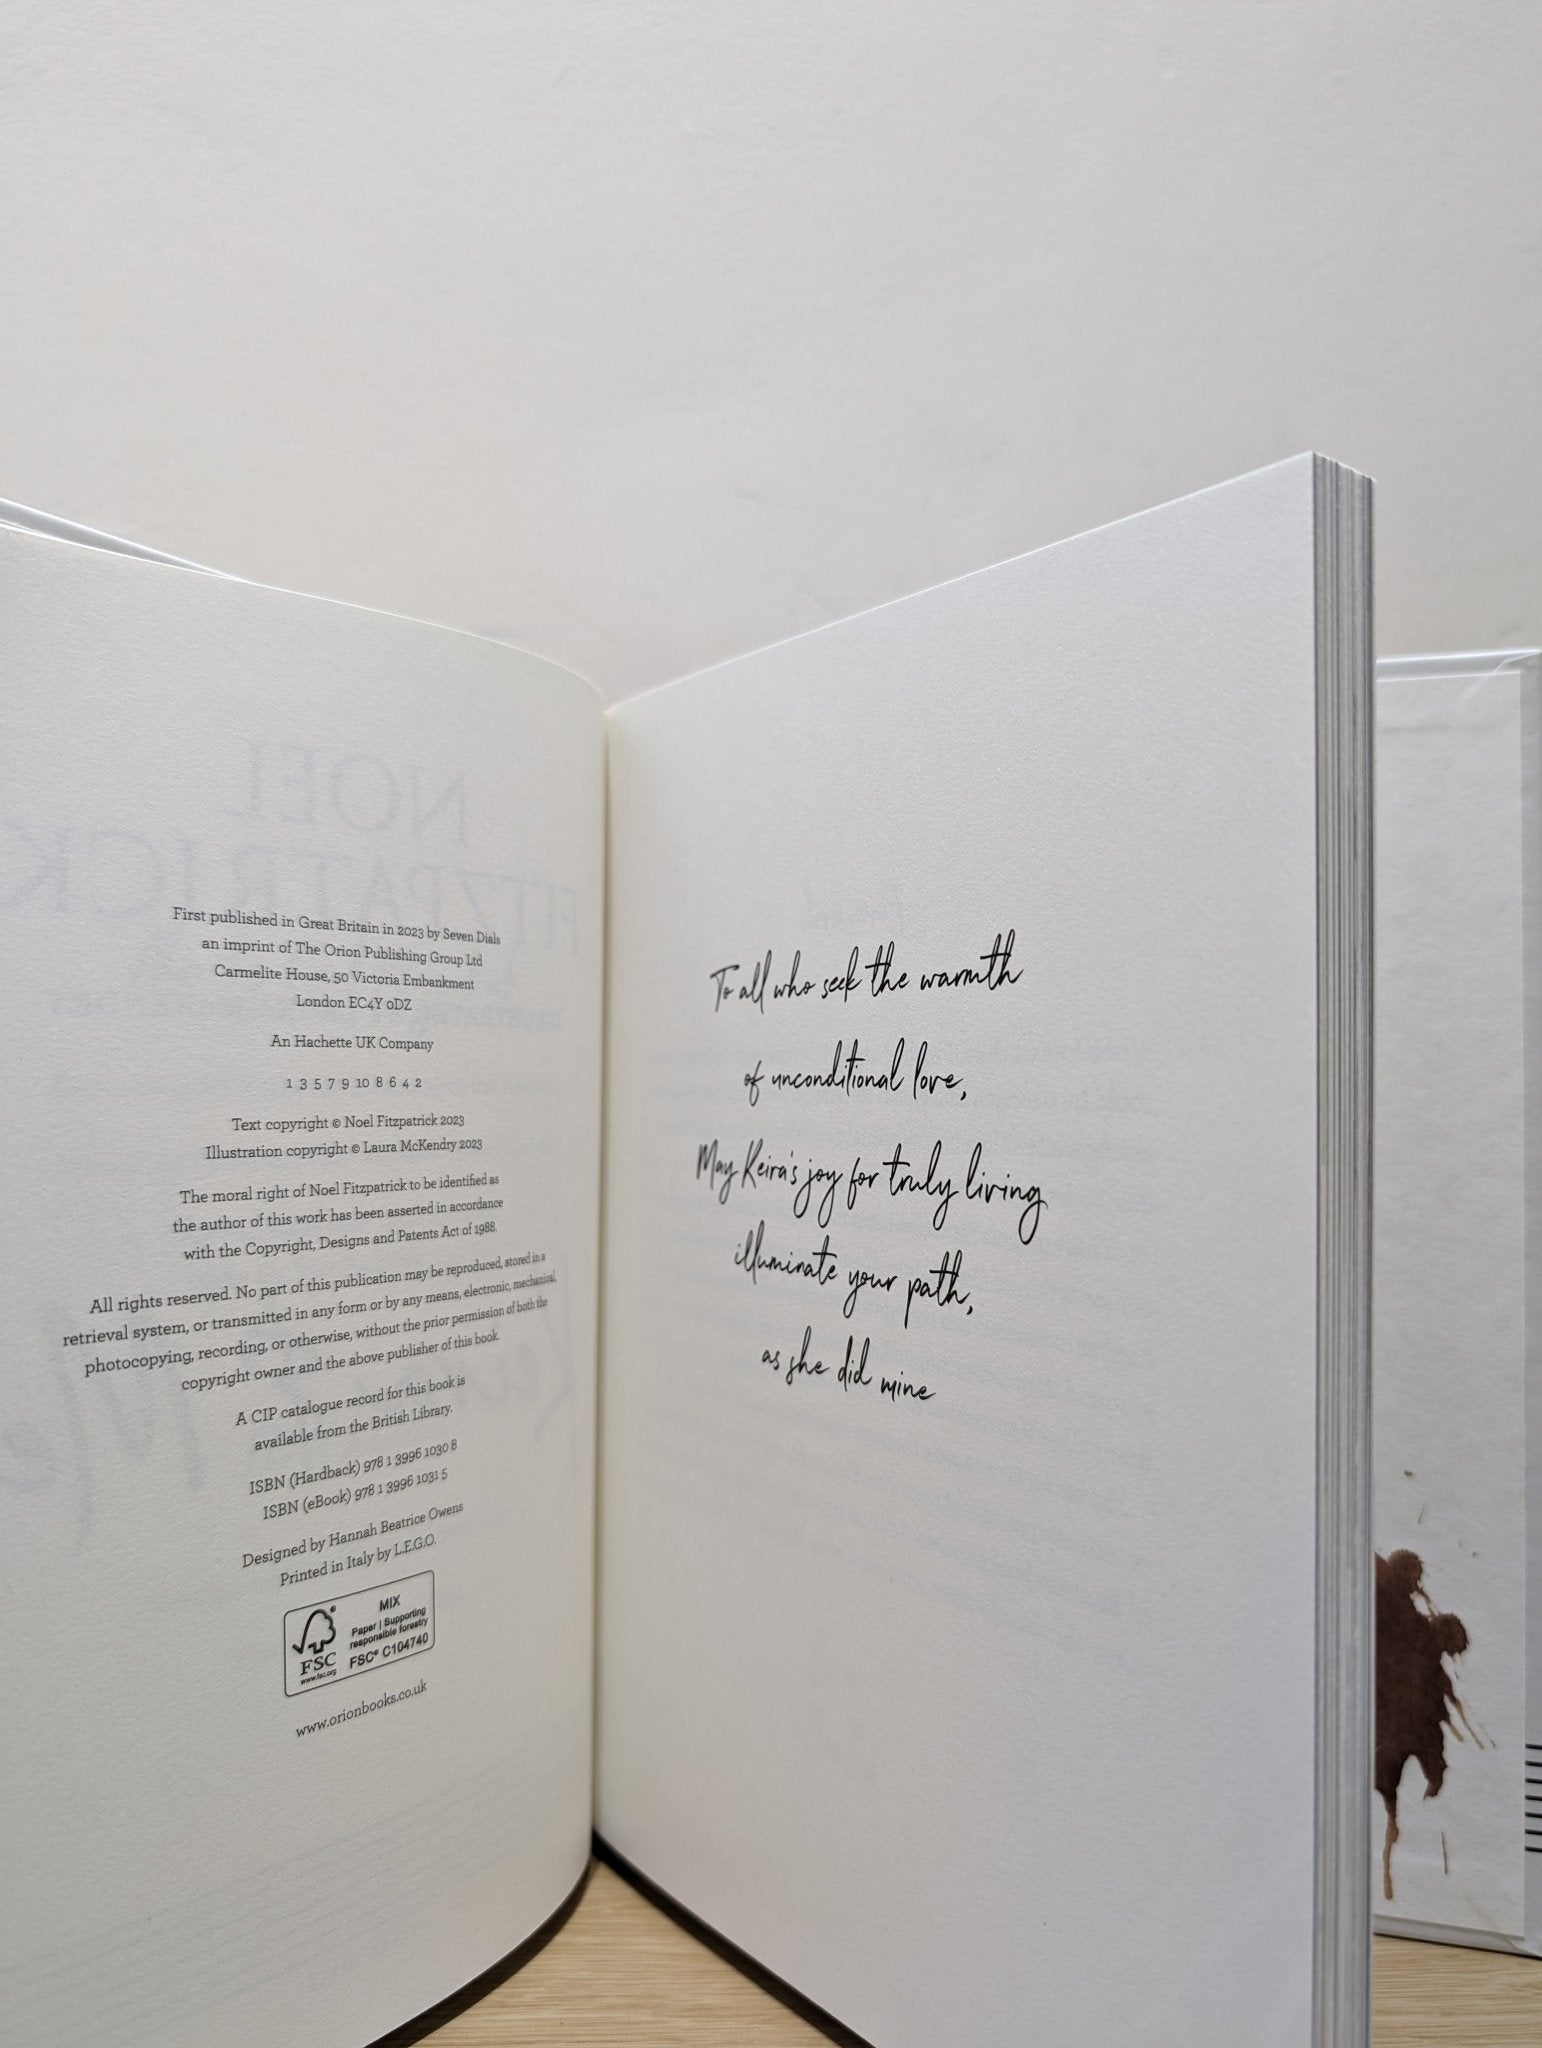 First published in Great Britain in 2023 by Seven Dials
an imprint of The Orion Publishing Group Ltd
Carmelite House, 50 Victoria Embankment
London EC4Y 0DZ
An Hachette UK Company
1 3 5 7 9 10 8 6 4 2
Text copyright © Noel Fitzpatrick 2023
Illustration copyright © Laura McKendry 2023
The moral right of Noel Fitzpatrick to be identified as
the author of this work has been asserted in accordance
with the Copyright, Designs and Patents Act of 1988.
All rights reserved. No part of this publication may be reproduced, stored in a
retrieval system, or transmitted in any form or by any means, electronic, mechanical,
photocopying, recording, or otherwise, without the prior permission of both the
copyright owner and the above publisher of this book.
A CIP catalogue record for this book is
available from the British Library.
ISBN (Hardback) 978 1 3996 1030 8
ISBN (eBook) 978 1 3996 1031 5
Designed by Hannah Beatrice Owens
Printed in Italy by L.E.G.O.
FSC®
www.fsc.org
MIX
Paper | Supporting
responsible forestry
FSC® C104740
www.orionbooks.co.uk
To all who seek the warmth
of unconditional love,
May Keira's joy for truly living
illuminate your path,
as she did mine
NOEL
FITZPATRICK